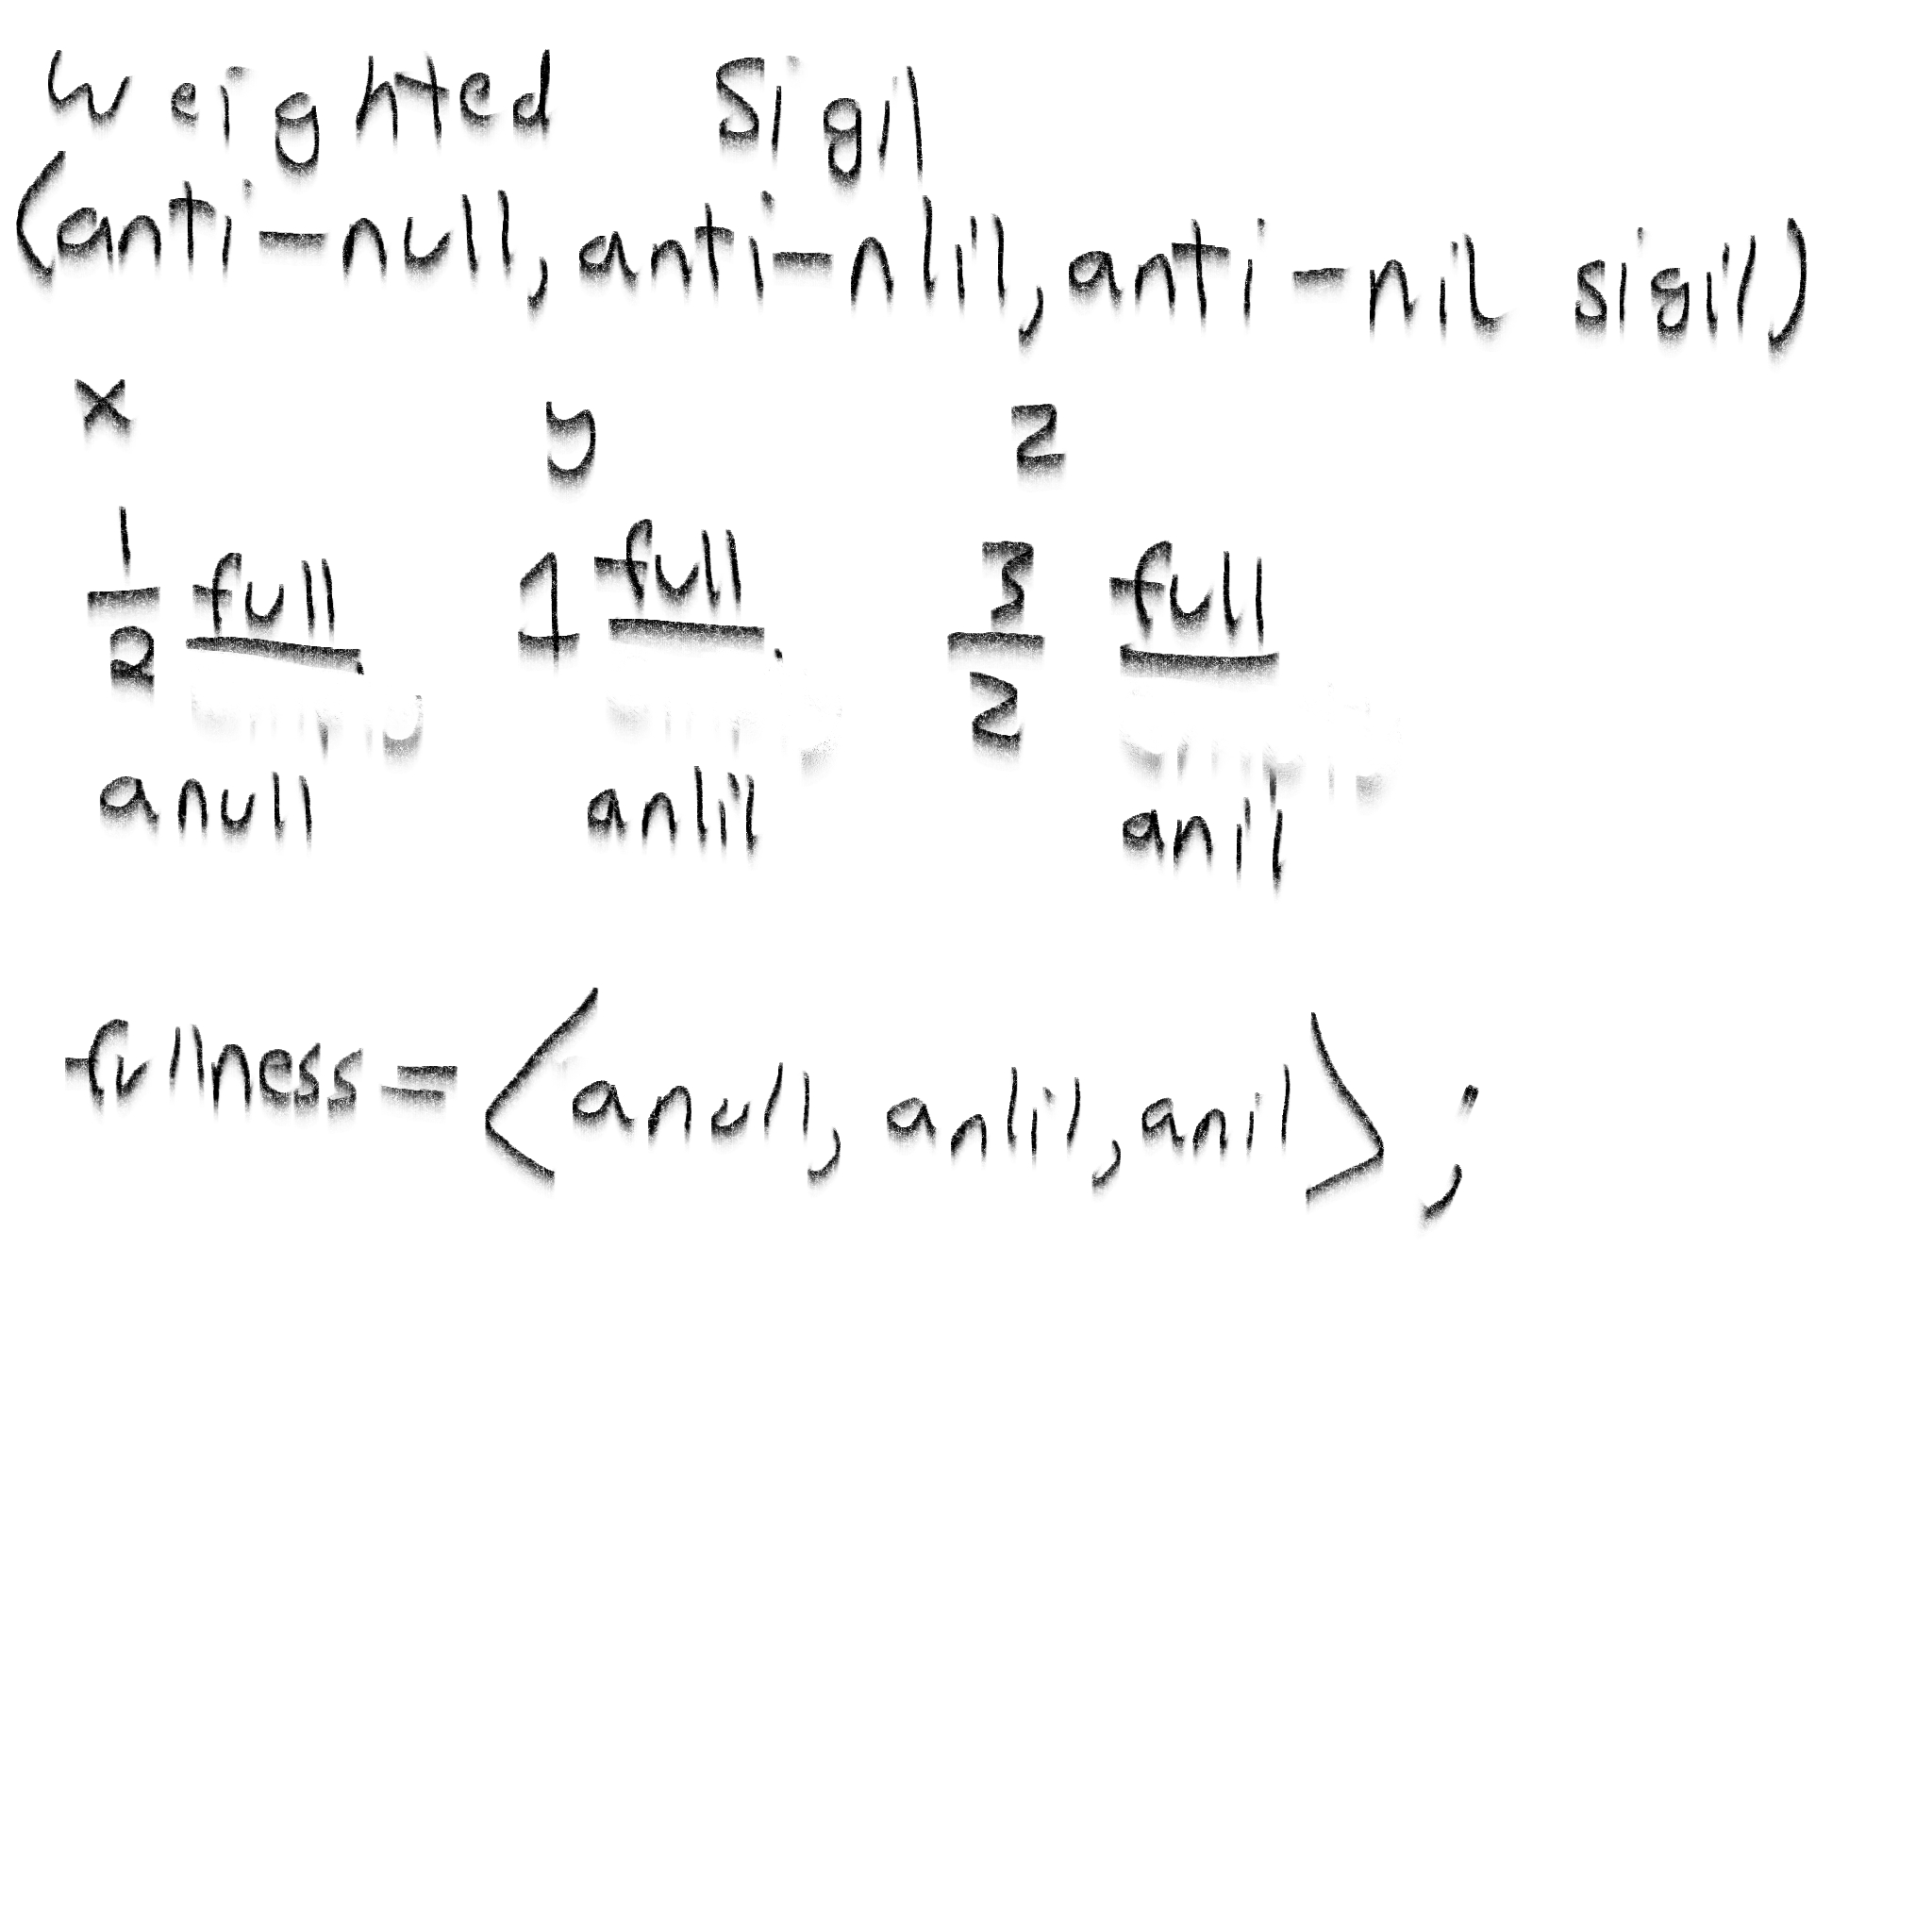 Weighted Sigil
(anti-null, anti-nlil, anti-nil sigil)
x y z
1/2 full 1 full 3/2 full
anull anlil anil
fullness = ⟨anull, anlil, anil⟩;